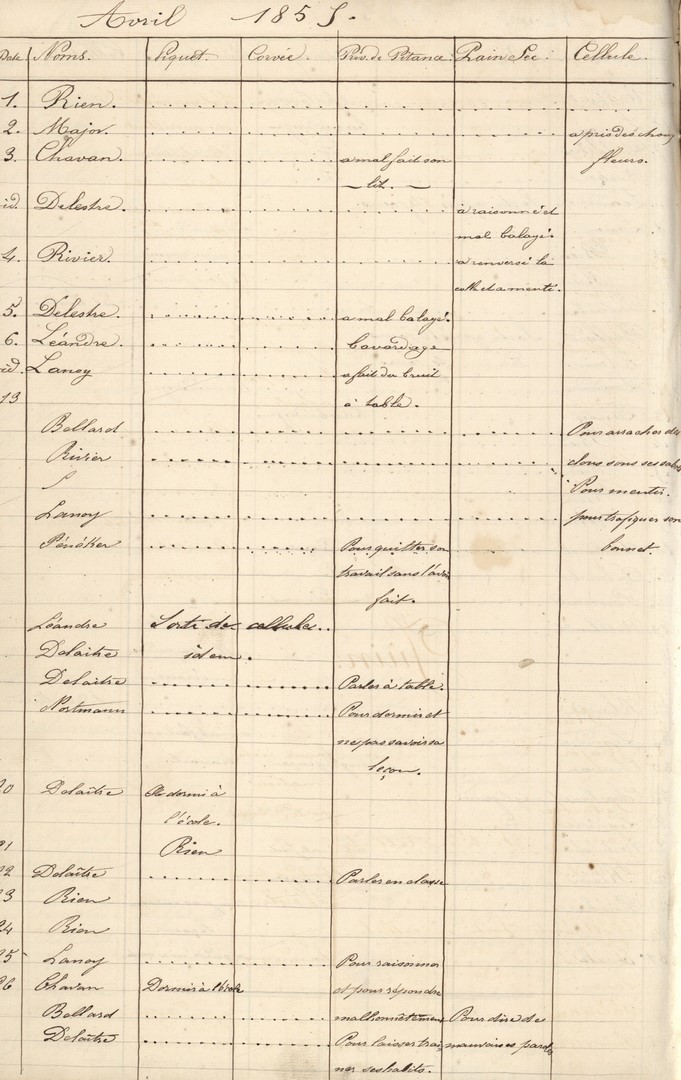 Avril 1855.
Date Noms. Piquet. Corvée. Priv. de Pitance. Pain Sec. Cellule.
1. Rien.
2. Major. a pris des choux
3. Chavan. a mal fait son fleurs.
lit.
id. Delestre. a raisonné et
mal balayé.
4. Rivier. a renversé la
et a menti.
5. Delestre. a mal balayé.
6. Léandre. bavardage
id. Lanoy a fait du bruit
13 à table.
Bollard Pour arracher des
Rivier clous sous ses sabots
Pour mentir.
Lanoy pour trafiquer son
Pour quitter son bonnet.
travail sans l'avoir
fait.
Léandre Sorti de cellule..
Delaitre idem.
Delaitre Parler à table.
Nortmann Pour dormir et
ne pas savoir sa
leçon.
20 Delaître A dormi à
l'école.
21 Rien
22 Delaître Parler en classe
23 Rien
24 Rien
25 Lanoy Pour raisonner
26 Chavan Dormir à l'école et pour répondre
Bollard malhonnêtement Pour dire de
Delaître Pour laisser traî mauvaises paroles
ner ses habits.